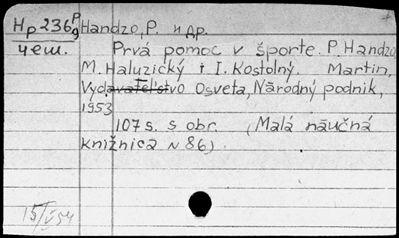 Нр 236 Р/g Handzo, P. и др.
чеш. Prvá pomoc v športe. P. Handzo,
M. Haluzický i I. Kostolný. Martin,
Vydavateľstvo Osveta, Národný podnik,
1953
107 s. s obr. (Malá náučná
knižnica N 86).
15/V 54